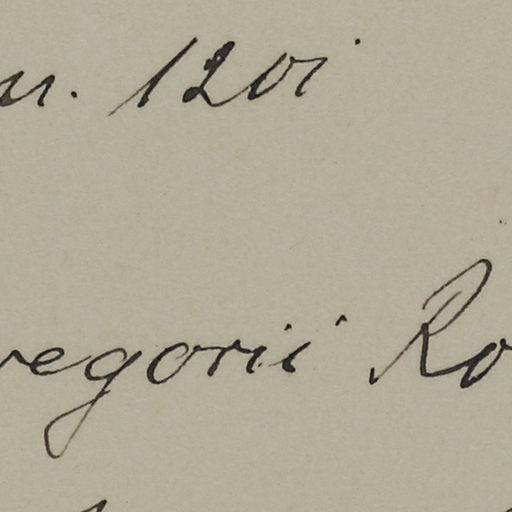 nr. 1201
regorii Ro